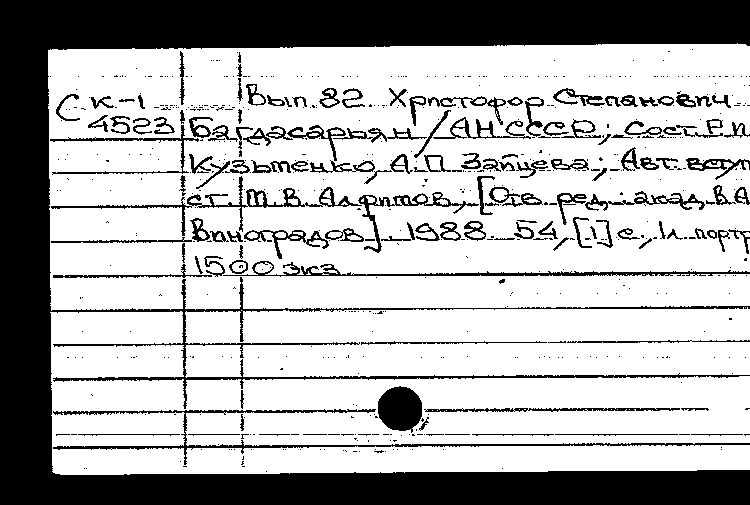 С К-1 Вып. 82. Христофор Степанович
4523 Багдасарьян / АН СССР; Сост. Р.И.
Кузьменко, А.П. Зайцева; Авт. вступ
ст. М.В. Алфимов; [Отв. ред.: акад. В.А.
Виноградов]. 1988. 54, [1] с., 1л. портр
1500 экз.